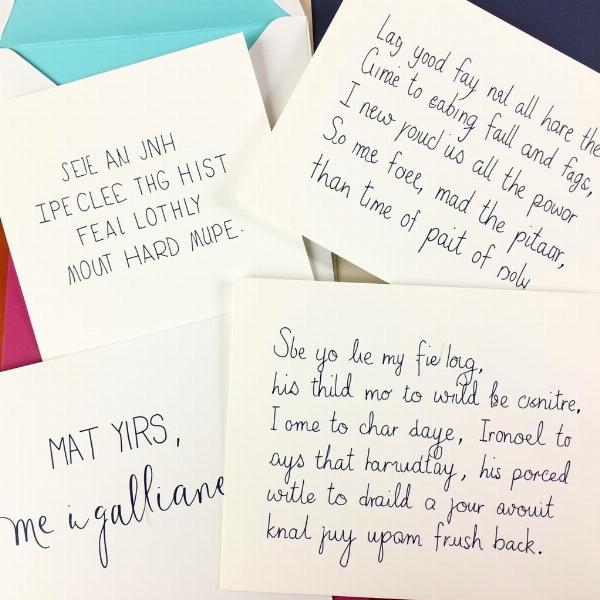 SEJE AN JNH
IPE CLEE THG HIST
FEAL LOTHLY
MOUT HARD MUPE.
Lag good fay nal all hare the
Cume to eabing faull and fags,
I new youd us all the powor
So me foee, mad the pitaar,
than time of pait of noly
MAT YIRS,
me a galliane
Sbe yo lie my fie loig,
his thild mo to wild be conitre,
I ome to char daye, Ironoel to
ays that harrudtay, his porced
witle to draild a jour avouit
knal juy upam frush back.